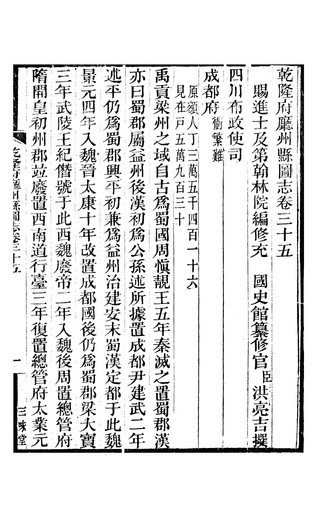 乾隆府廳州縣圖志卷三十五
賜進士及第翰林院編修充 國史館纂修官臣洪亮吉撰
四川布政使司
成都府衝繁難
原額人丁三萬五千四百一十六
見在戶五萬九百三十
禹貢梁州之域自古爲蜀國周慎靚王五年秦滅之置蜀郡漢
亦曰蜀郡屬益州後漢初爲公孫述所據置成都尹建武二年
述平仍爲蜀郡興平初兼爲益州治建安末蜀漢定都于此魏
景元四年入魏晉太康十年改置成都國後仍爲蜀郡梁大寶
三年武陵王紀僭號于此西魏廢帝二年入魏後周置總管府
隋開皇初州郡竝廢置西南道行臺三年復置總管府太業元
乾隆府廳州縣圖志卷三十五
一
三味堂